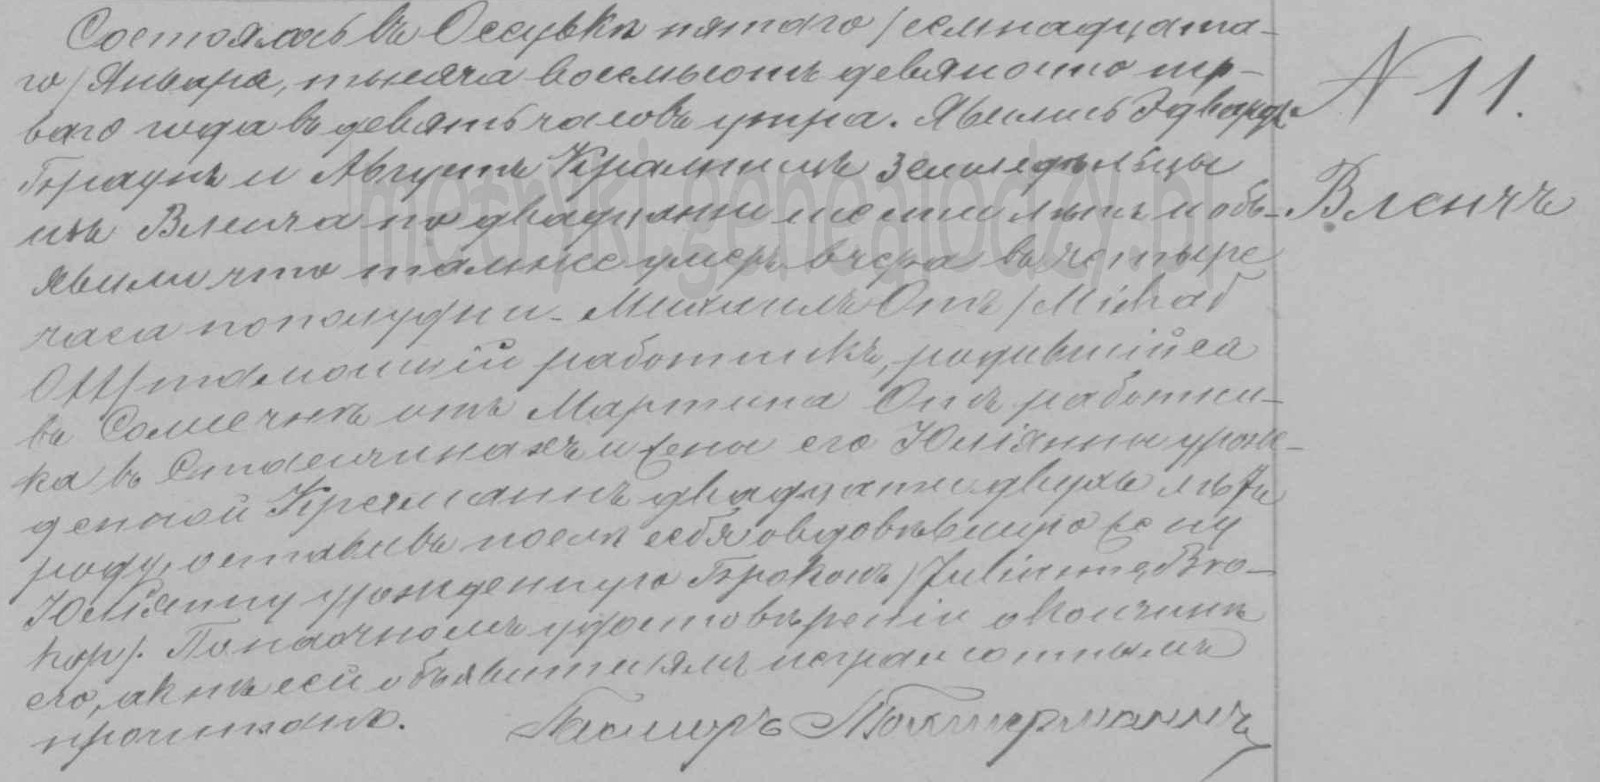 Состоялось въ Оссувкѣ пятаго /семнадцата-
го/ Января, тысяча восемьсотъ девяносто пер-
ваго года въ девять часовъ утра. Явились Эдвардъ
Браунъ и Августъ земледѣльцы
изъ Вленча по двадцати шести лѣтъ и объ-
явили что тамже умеръ вчера въ четыре
часа пополудни Михаилъ Оттъ /Michał
Ott/ тамошній работникъ, родившійся
въ отъ Мартина Оттъ работни-
ка въ и жена его Юліянны урож-
денной двадцати двухъ лѣтъ
роду, оставивъ послѣ себя овдовѣвшую жену
Юліянну урожденную /Julianne Bro-
/. По настоящемъ удостовѣреніи о кончинѣ
его, актъ сей объявителямъ неграмотнымъ
прочитанъ. Пасторъ
N 11.
Вленчъ
metryki.genealodzy.pl